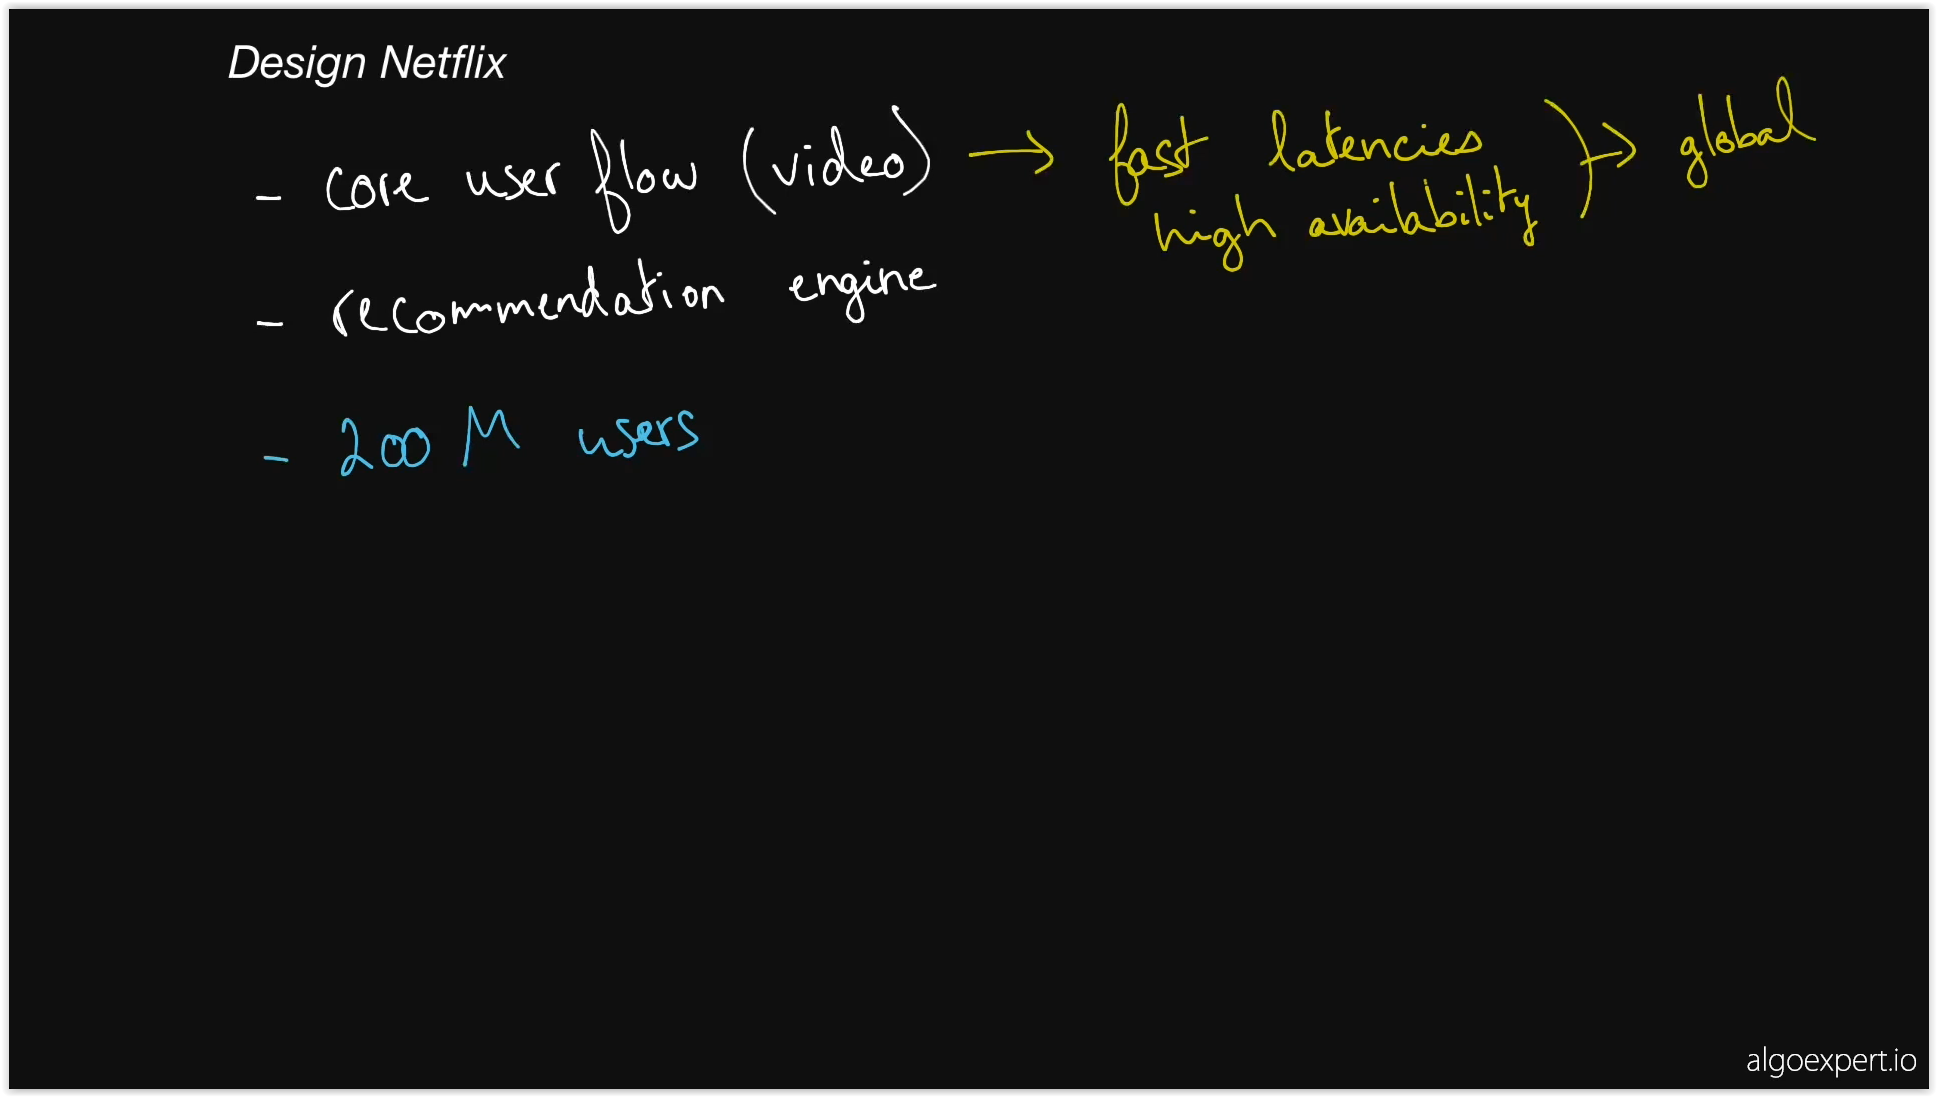 Design Netflix
- core user flow (video) → fast latencies ) → global
high availability
- recommendation engine
- 200 M users
algoexpert.io